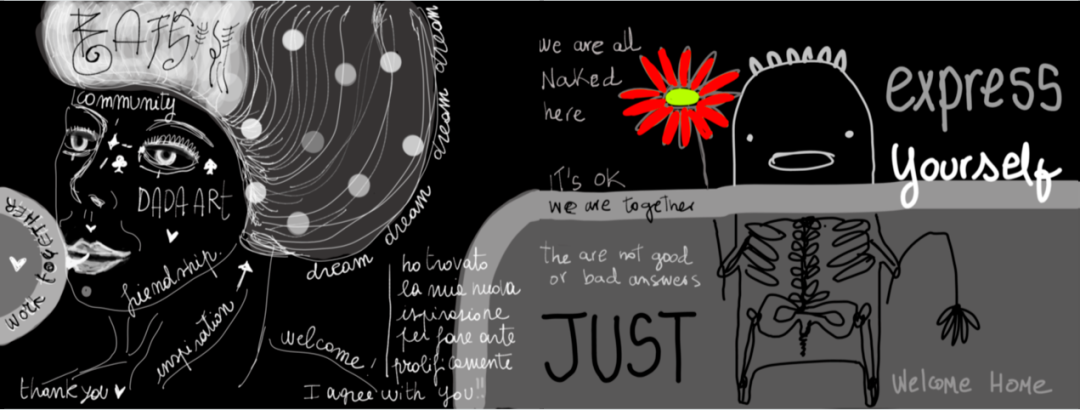 community
DADA ART
WORK TOGETHER
friendship.
inspiration
thank you
welcome
dream
dream
dream
dream
dream
ho trovato
la mia nuova
ispirazione
per fare arte
prolificamente
I agree with you!!
we are all
Naked
here
IT'S OK
we are together
The are not good
or bad answers
JUST
express
yourself
Welcome Home